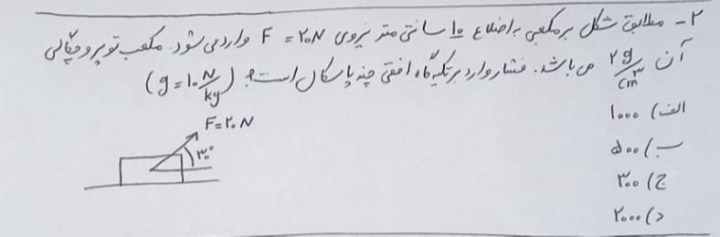 ۲- مطابق شکل بر مکعبی به اضلاع ۱۰ سانتی متر نیروی F = ۲۰N وارد می شود. مکعب توپر و چگالی
آن ۲ g/cm³ می باشد. فشار وارد بر تکیه گاه افقی چند پاسکال است؟ (g = ۱۰ N/kg)
الف) ۱۰۰۰
ب) ۵۰۰
ج) ۳۰۰
د) ۲۰۰۰
F = ۲۰N
۳۰°